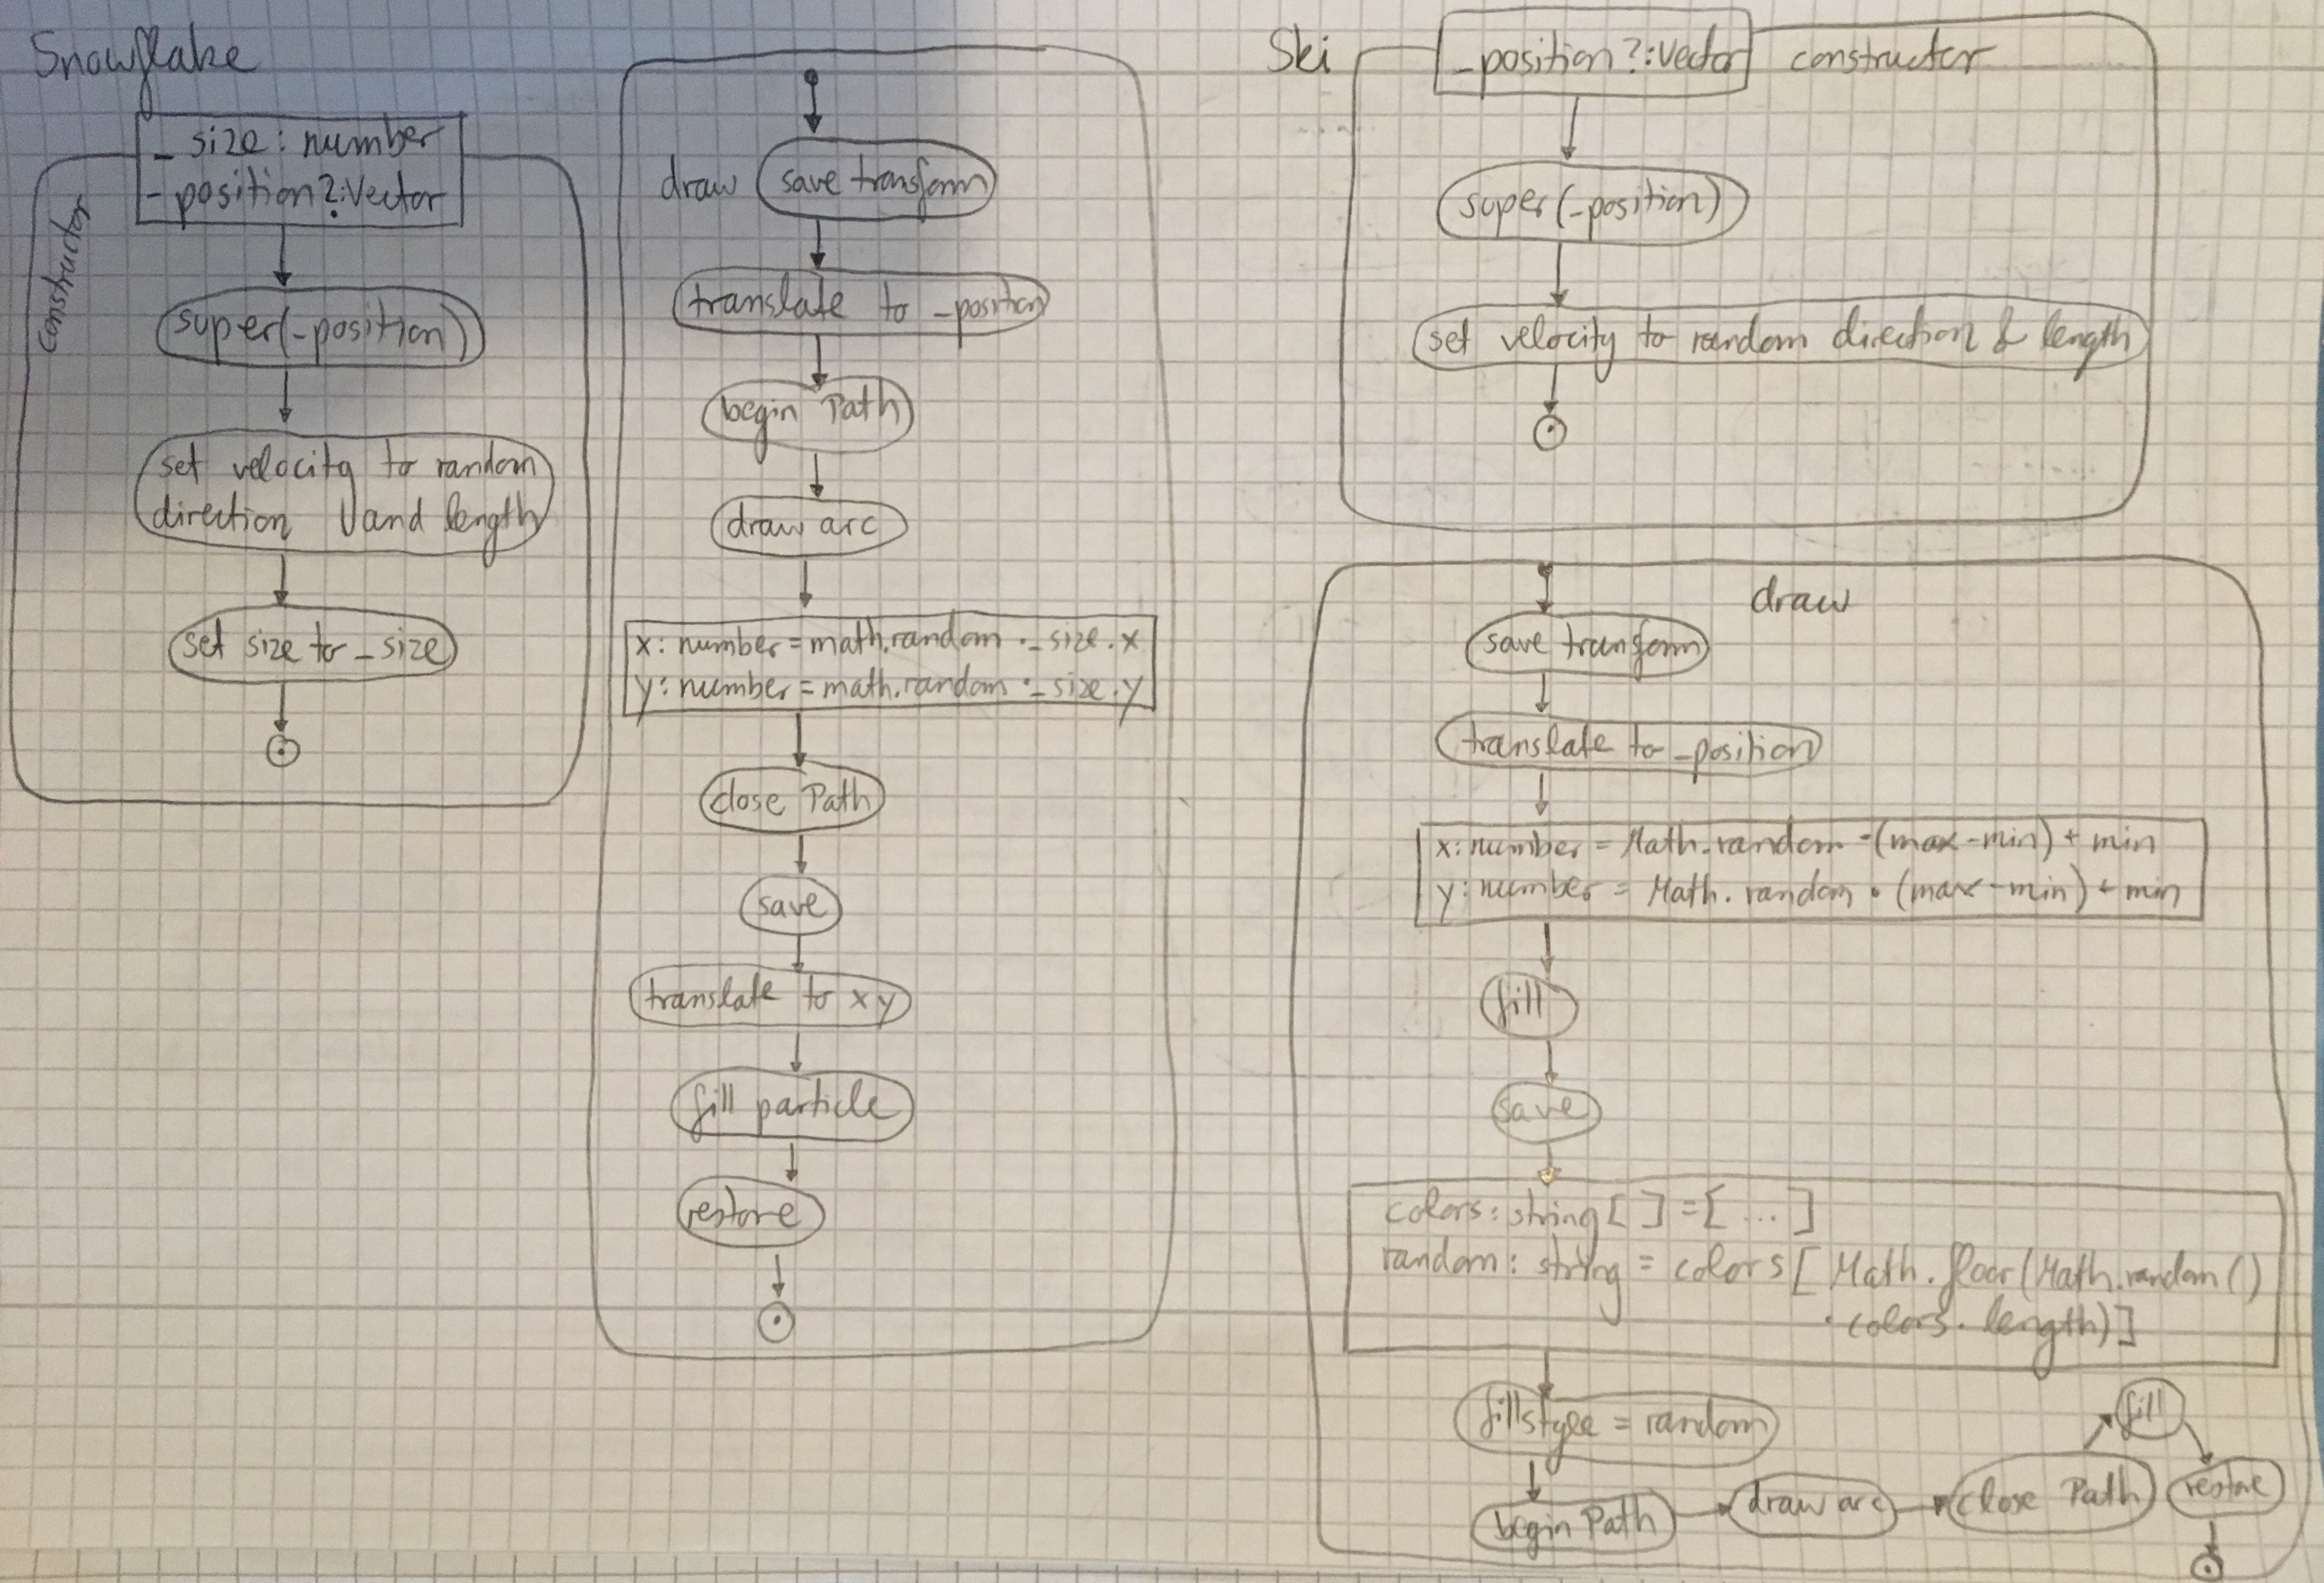 Snowflake
constructor
_size: number
_position?: Vector
super(_position)
set velocity to random
direction and length
set size to _size
draw
save transform
translate to _position
begin Path
draw arc
x: number = math.random · _size.x
y: number = math.random · _size.y
close Path
save
translate to x y
fill particle
restore
Ski
_position?: Vector
constructor
super(_position)
set velocity to random direction & length
draw
save transform
translate to _position
x: number = Math.random · (max - min) + min
y: number = Math.random · (max - min) + min
fill
save
colors: string [ ] = [ ... ]
random: string = colors [ Math.floor(Math.random()
· colors.length)]
fillstyle = random
begin Path
draw arc
close Path
fill
restore